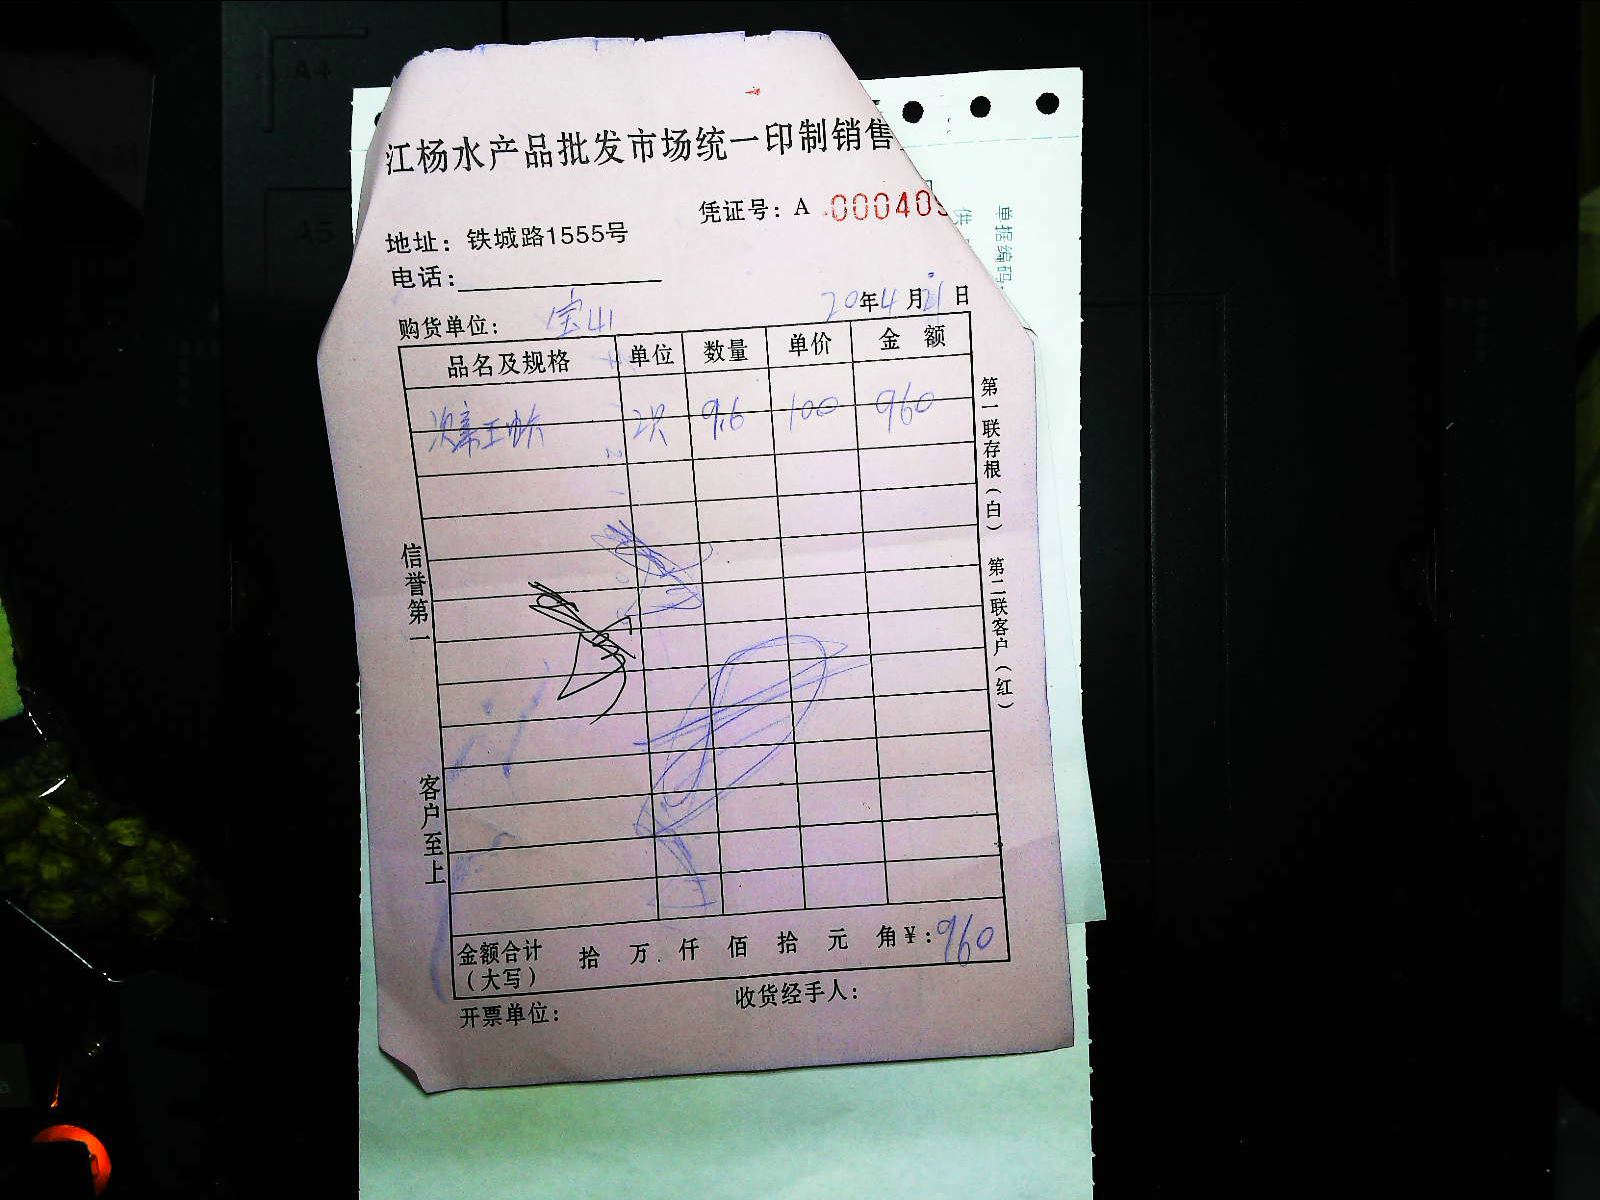 江杨水产品批发市场统一印制销售
凭证号：A 000409
地址：铁城路1555号
电话：
购货单位：宝山 20年4月21日
品名及规格 单位 数量 单价 金额
2只 9.6 100 960
第一联存根（白） 第二联客户（红）
信誉第一 客户至上
金额合计（大写） 拾 万 仟 佰 拾 元 角 ¥：960
开票单位： 收货经手人：
单据编码
供
A4
A5